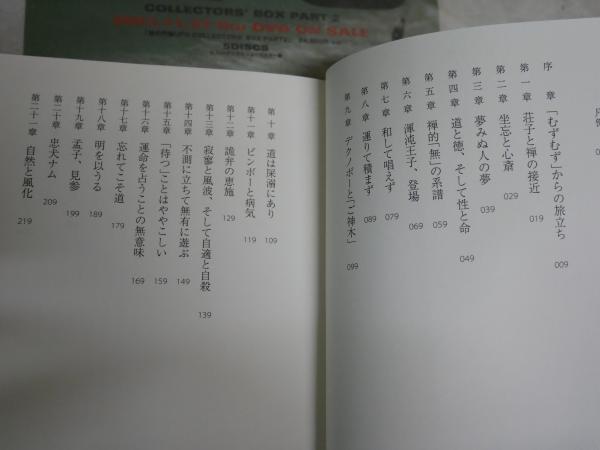 COLLECTORS' BOX PART 2
DVD ON SALE
5DISCS
序章 「むずむず」からの旅立ち 009
第一章 荘子と禅の接近 019
第二章 坐忘と心斎 029
第三章 夢みぬ人の夢 039
第四章 道と徳、そして性と命 049
第五章 禅的「無」の系譜 059
第六章 渾沌王子、登場 069
第七章 和して唱えず 079
第八章 運りて積まず 089
第九章 デクノボーと「ご神木」 099
第十章 道は屎溺にあり 109
第十一章 ビンボーと病気 119
第十二章 詭弁の恵施 129
第十三章 寂寥と風波、そして自適と自殺 139
第十四章 不測に立ちて無有に遊ぶ 149
第十五章 「待つ」ことはややこしい 159
第十六章 運命を占うことの無意味 169
第十七章 忘れてこそ道 179
第十八章 明を以うる 189
第十九章 孟子、見参 199
第二十章 忠犬ナム 209
第二十一章 自然と風化 219